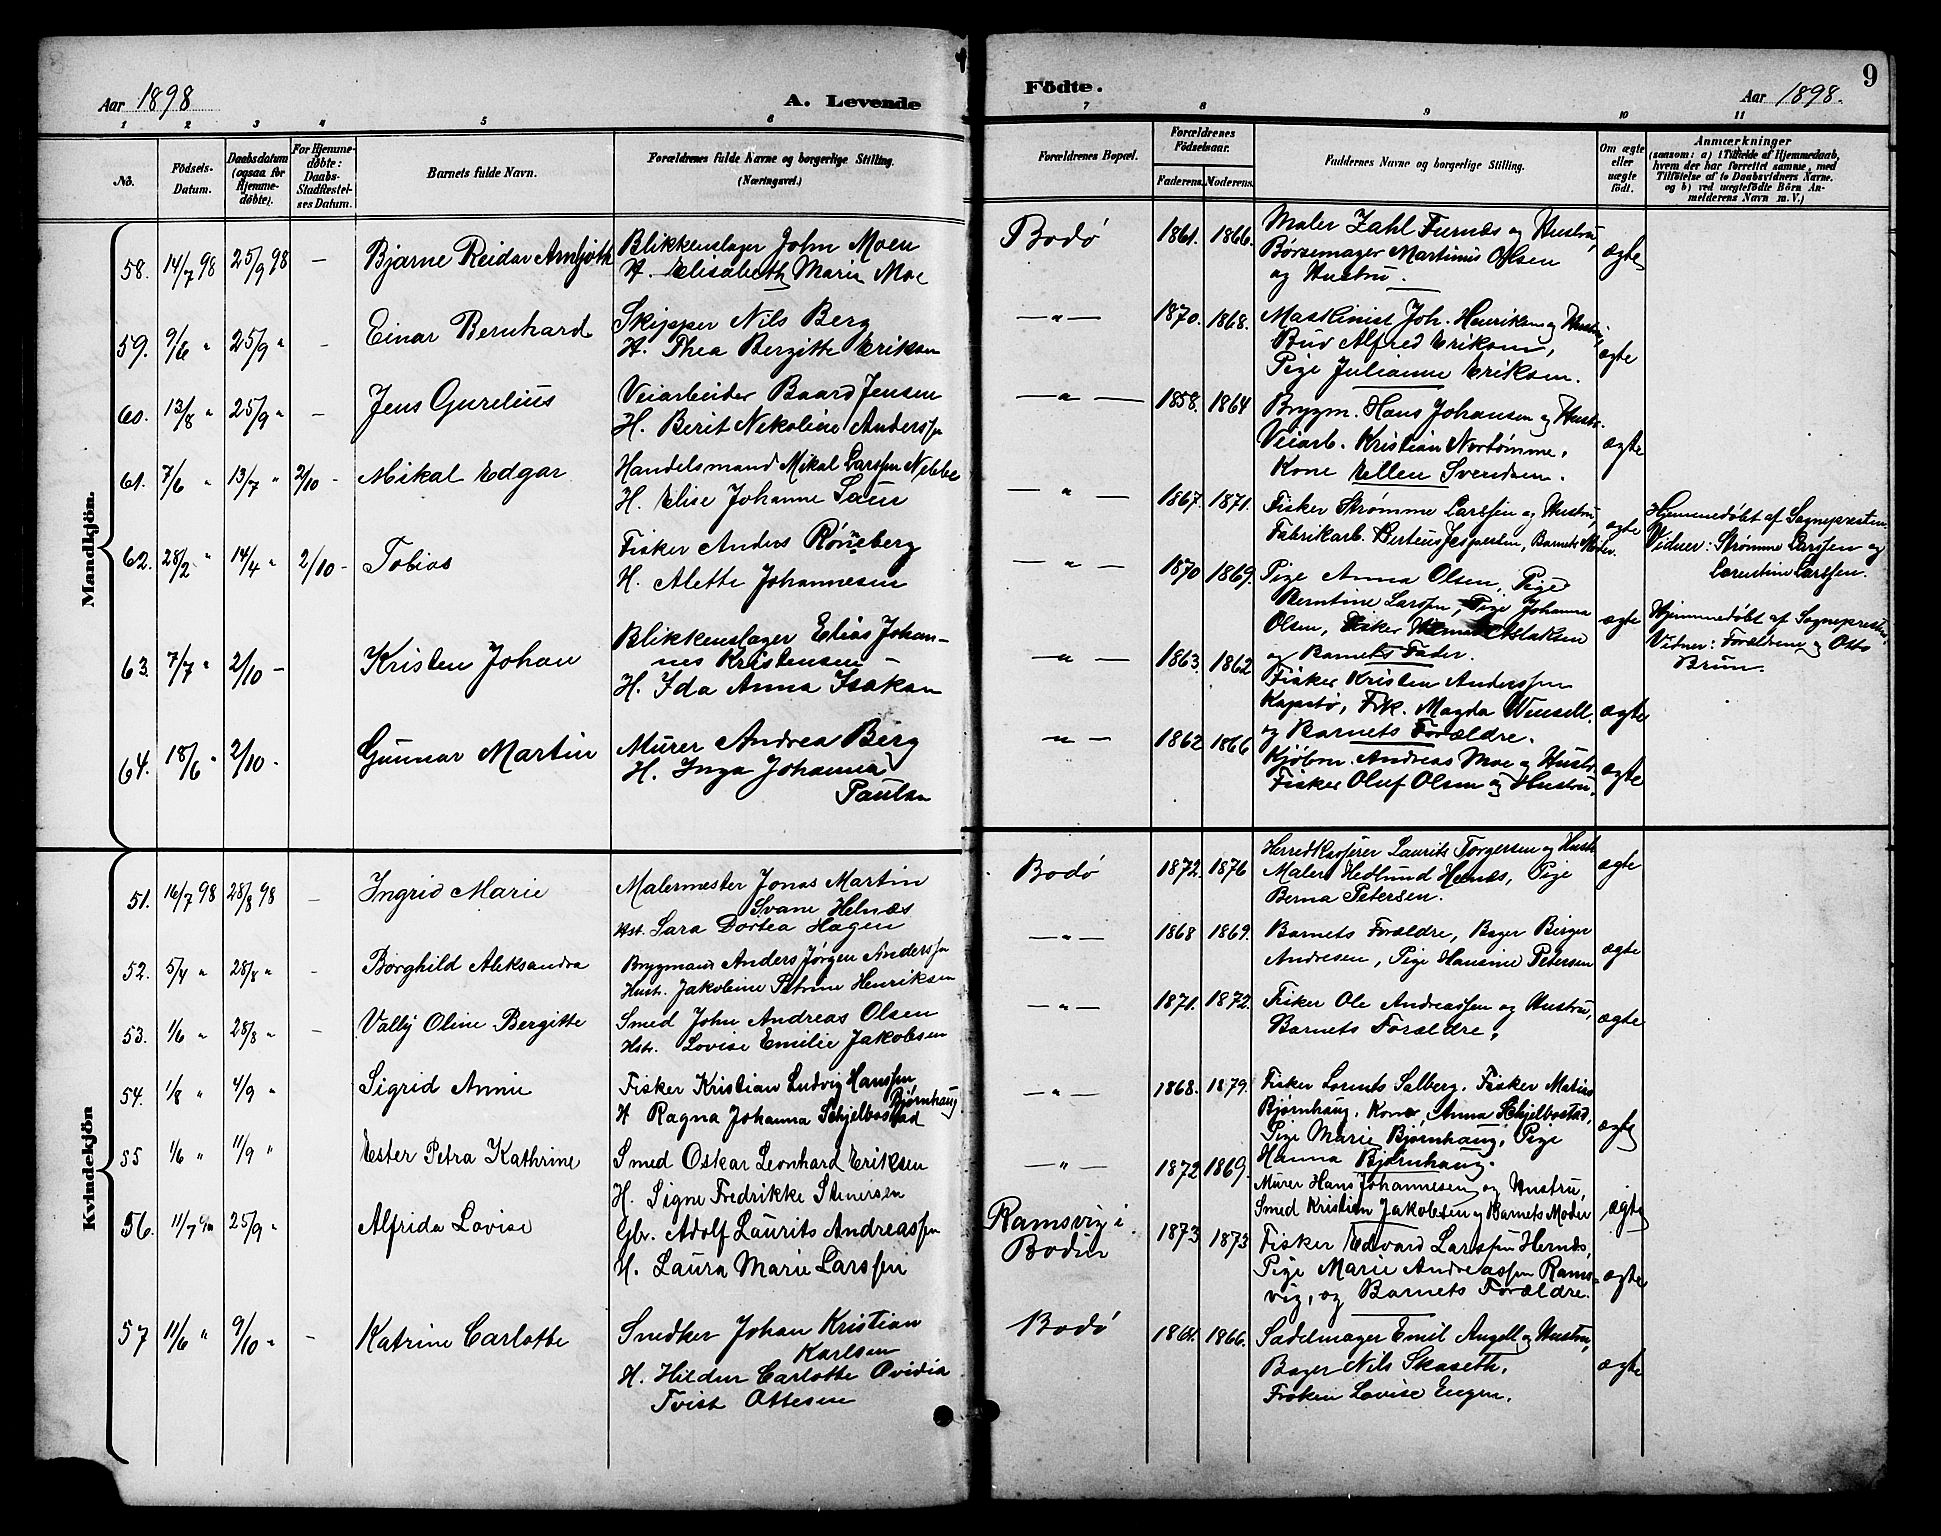 Aar 1898
A. Levende
1 2 3 4 5 6
No.
Födsels-Datum.
Daabsdatum (ogsaa for Hjemmedöbte).
For Hjemmedöbte: Daabs-Stadfæstelses Datum.
Barnets fulde Navn.
Forældrenes fulde Navne og borgerlige Stilling.
(Næringsvei.)
Mandkjön.
58. 14/7 98 25/9 98 — Bjarne Reidar Arnljoth Blikkenslager John Moen
H. Elisabeth Marie Moe
59. 9/6 " 25/9 " - Einar Bernhard Skipper Nils Berg
H. Thea Bergitte Eriksen
60. 13/8 " 25/9 " - Jens Gurelius Veiarbeider Baard Jensen
H. Berit Nekoline Anderssen
61. 7/6 " 13/7 " 2/10 - Mikal Edgar Handelsmand Mikal Larssen Nebbe
H. Elise Johanne
62. 28/2 " 14/4 " 2/10 - Tobias Fisker Anders Rønsberg
H. Alette Johannesen
63. 7/7 " 2/10 - Kristen Johan Blikkenslager Elias Johan-
nes Kristensen -
H. Ida Anna Isaksen
64. 18/6 " 2/10 - Gunnar Martin Murer Andrea Berg
H. Inga Johanna
Paulsen
Kvindekjön
51. 16/7 98 28/8 98 - Ingrid Marie Malermester Jonas Martin
Svane Helnæs
Hst. Sara Dortea Hagen
52. 5/4 " 28/8 " - Borghild Aleksandra Brygmand Anders Jørgen Anderssen
Hust. Jakobine Petrine Henriksen
53. 1/6 " 28/8 " - Vally Oline Bergitte Smed John Andreas Olsen
Hstr. Lovise Emilie Jakobsen
54. 1/8 " 4/9 " - Sigrid Annie Fisker Kristian Ludvig Hanssen
Bjørnhaug
H Ragna Johanna Skjelbostad
55 1/6 " 11/9 " Ester Petra Kathrine Smed Oskar Leonhard Eriksen
H. Signe Fredrikke Stenersen
56. 11/7 25/9 " Alfrida Lovise Gbr. Adolf Laurits Andreassen
H. Laura Marie Larssen
57 11/6 " 9/10 " - Katrine Carlotte Snedker Johan Kristian
Karlsen
H. Hilder Carlotte Ovidia
Tvist Ottesen
Födte.
9
Aar 1898.
7 8 9 10 11
Forældrenes Bopæl.
Forældrenes Födselsaar.
Faderens. Moderens.
Faddernes Navne og borgerlige Stilling.
Om ægte eller uægte födt.
Anmærkninger
(saasom: a) i Tilfælde af Hjemmedaab, hvem der har forrettet samme, med Tilföielse af to Daabsvidners Navne. og b) ved uægtefödte Börn Anmelderens Navn m. V.)
Bodø 1861. 1866. Maler Zahl Furnæs og Hustru,
Børsemager Martinus Olsen ægte
og Hustru.
— " — 1870. 1868. Maskinist Joh. Henriksen og Hustru,
Alfred Eriksen, ægte
Pige Julianne Eriksen.
— " — 1858. 1864 Brygm. Hans Johansen og Hustr.
Veiarb. Kristian Nertømme, ægte
Kone Ellen Svendsen.
— " — 1867. 1871. Fisker Strømme Larssen og Hustru, ægte Hjemmedøbt af Sognepresten
Fabrikarb. Berteus Jespersen, Barnets Moder. Vidner: Strømme Larssen og
Lorentine Larssen.
— " — 1870 1869. Pige Anna Olsen, Pige
Berntine Larssen, Pige Johanna ægte Hjemmedøbt af Sognepresten
Olsen, Fisker Aslaksen Vidner: Forældrene og Otto
og Barnets Fader. Brun.
— " — 1863. 1862 Fisker Kristen Anderssen
Kapstø, Frk. Magda Wensell. ægte
og Barnets Forældre.
— " — 1862 1866 Kjøbm. Andreas Moe og Hustr.
Fisker Oluf Olsen og Hustru. ægte
Bodø 1872. 1876 Herredkasserer Laurits Torgersen og Hustr. ægte
Maler Hedlund Helnæs, Pige
Berna Petersen.
— " — 1868 1869. Barnets Forældre, Bager Birger
Andresen, Pige Hansine Petersen ægte
— " — 1871. 1872. Fisker Ole Andreassen og Hustru,
Barnets Forældre, ægte
— " — 1868. 1879. Fisker Lorents Salberg. Fisker Matias
Bjørnhaug. Kone Anna Skjelbostad,
Pige Marie Bjørnhaug, Pige ægte
Hanna Bjørnhaug.
— " — 1872 1869. Murer Hans Johannesen og Hustru,
Smed Kristian Jakobsen og Barnets Moder ægte
Ramsvig i
Bodin 1873 1873 Fisker Edvard Larssen Hernæs,
Pige Marie Andreassen Rams- ægte
vig, og Barnets Forældre.
Bodø 1861. 1866. Sadelmager Emil Angell og Hustru,
Bager Nils Skaseth, ægte
Frøken Lovise Engen.